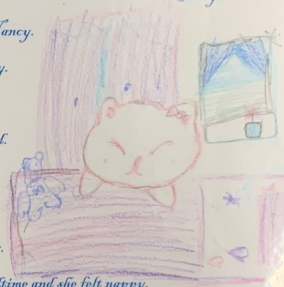 ancy.
y.
d.
e.
time and she felt happy.